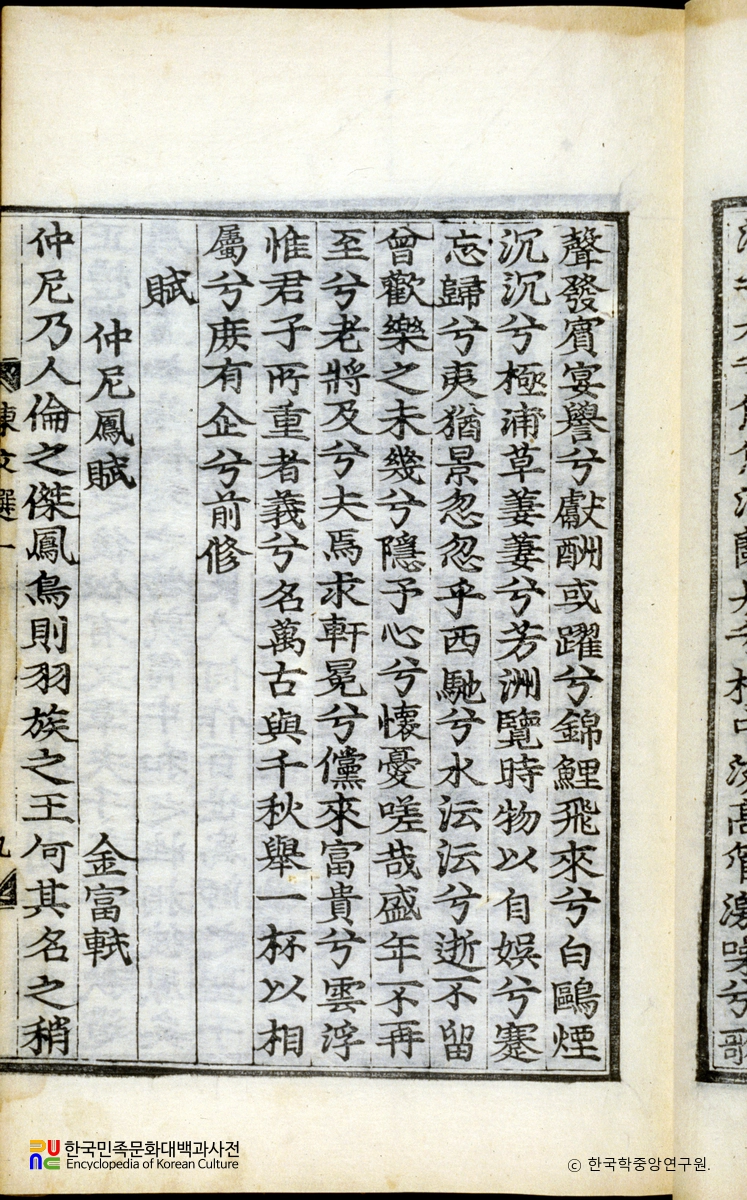 聲發賓宴譽兮獻酬或躍兮錦鯉飛來兮白鷗煙
沉沉兮極浦草萋萋兮芳洲覽時物以自娛兮蹇
忘歸兮夷猶景忽忽乎西馳兮水沄沄兮逝不留
曾歡樂之未幾兮隱予心兮懷憂嗟哉盛年不再
至兮老將及兮夫焉求軒冕兮儻來富貴兮雲浮
惟君子所重者義兮名萬古與千秋舉一杯以相
屬兮庶有企兮前脩
賦
仲尼鳳賦 金富軾
仲尼乃人倫之傑鳳鳥則羽族之王何其名之稍
東文選一 九
한국민족문화대백과사전
Encyclopedia of Korean Culture
© 한국학중앙연구원.